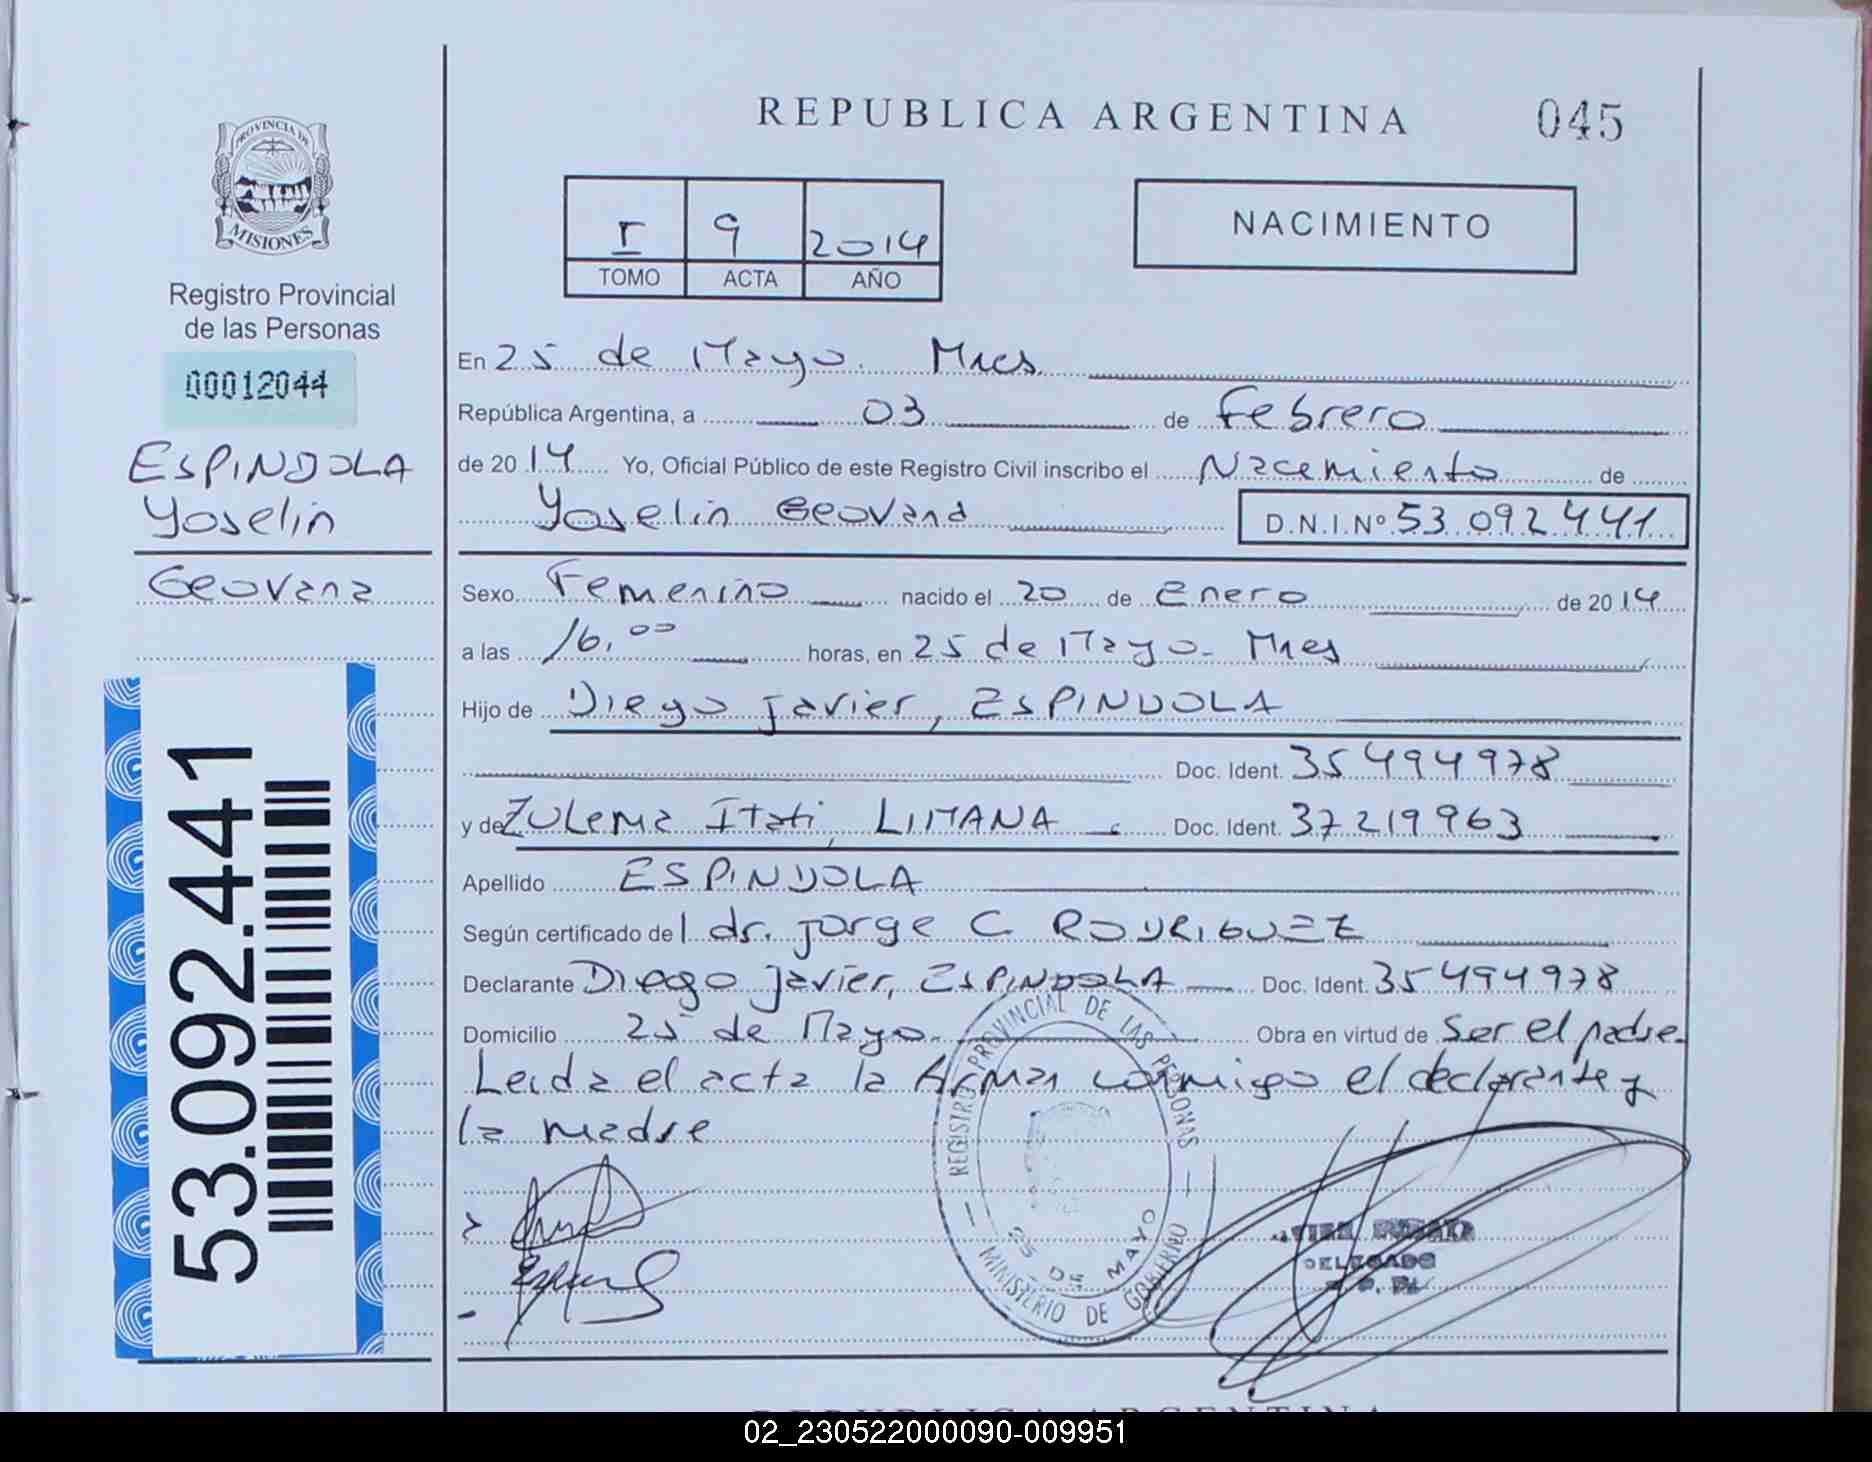 REPUBLICA ARGENTINA
045
PROVINCIA DE
MISIONES
Registro Provincial
de las Personas
00012044
ESPINDOLA
Yoselin
Geovana
53.092.441
I 9 2014
TOMO ACTA AÑO
NACIMIENTO
En 25 de Mayo. Mnes
República Argentina, a 03 de Febrero
de 2014 Yo, Oficial Público de este Registro Civil inscribo el Nacemiento de
Yoselin Geovana D.N.I.Nº 53.092.441
Sexo Femenino nacido el 20 de Enero de 2014
a las 16,00 horas, en 25 de Mayo - Mnes
Hijo de Diego javier, ESPINDOLA
Doc. Ident. 35494978
y de Zulema Itati, LIMANA Doc. Ident. 37219963
Apellido ESPINDOLA
Según certificado del dr. jorge C. RODRIGUEZ
Declarante Diego javier, ESPINDOLA Doc. Ident. 35494978
Domicilio 25 de Mayo. Obra en virtud de Ser el padre.
Leida el acta la firman conmigo el declarante y
la madre
REGISTRO PROVINCIAL DE LAS PERSONAS
25 DE MAYO
MINISTERIO DE GOBIERNO
DELEGADO
REPUBLICA ARGENTINA
02_230522000090-009951